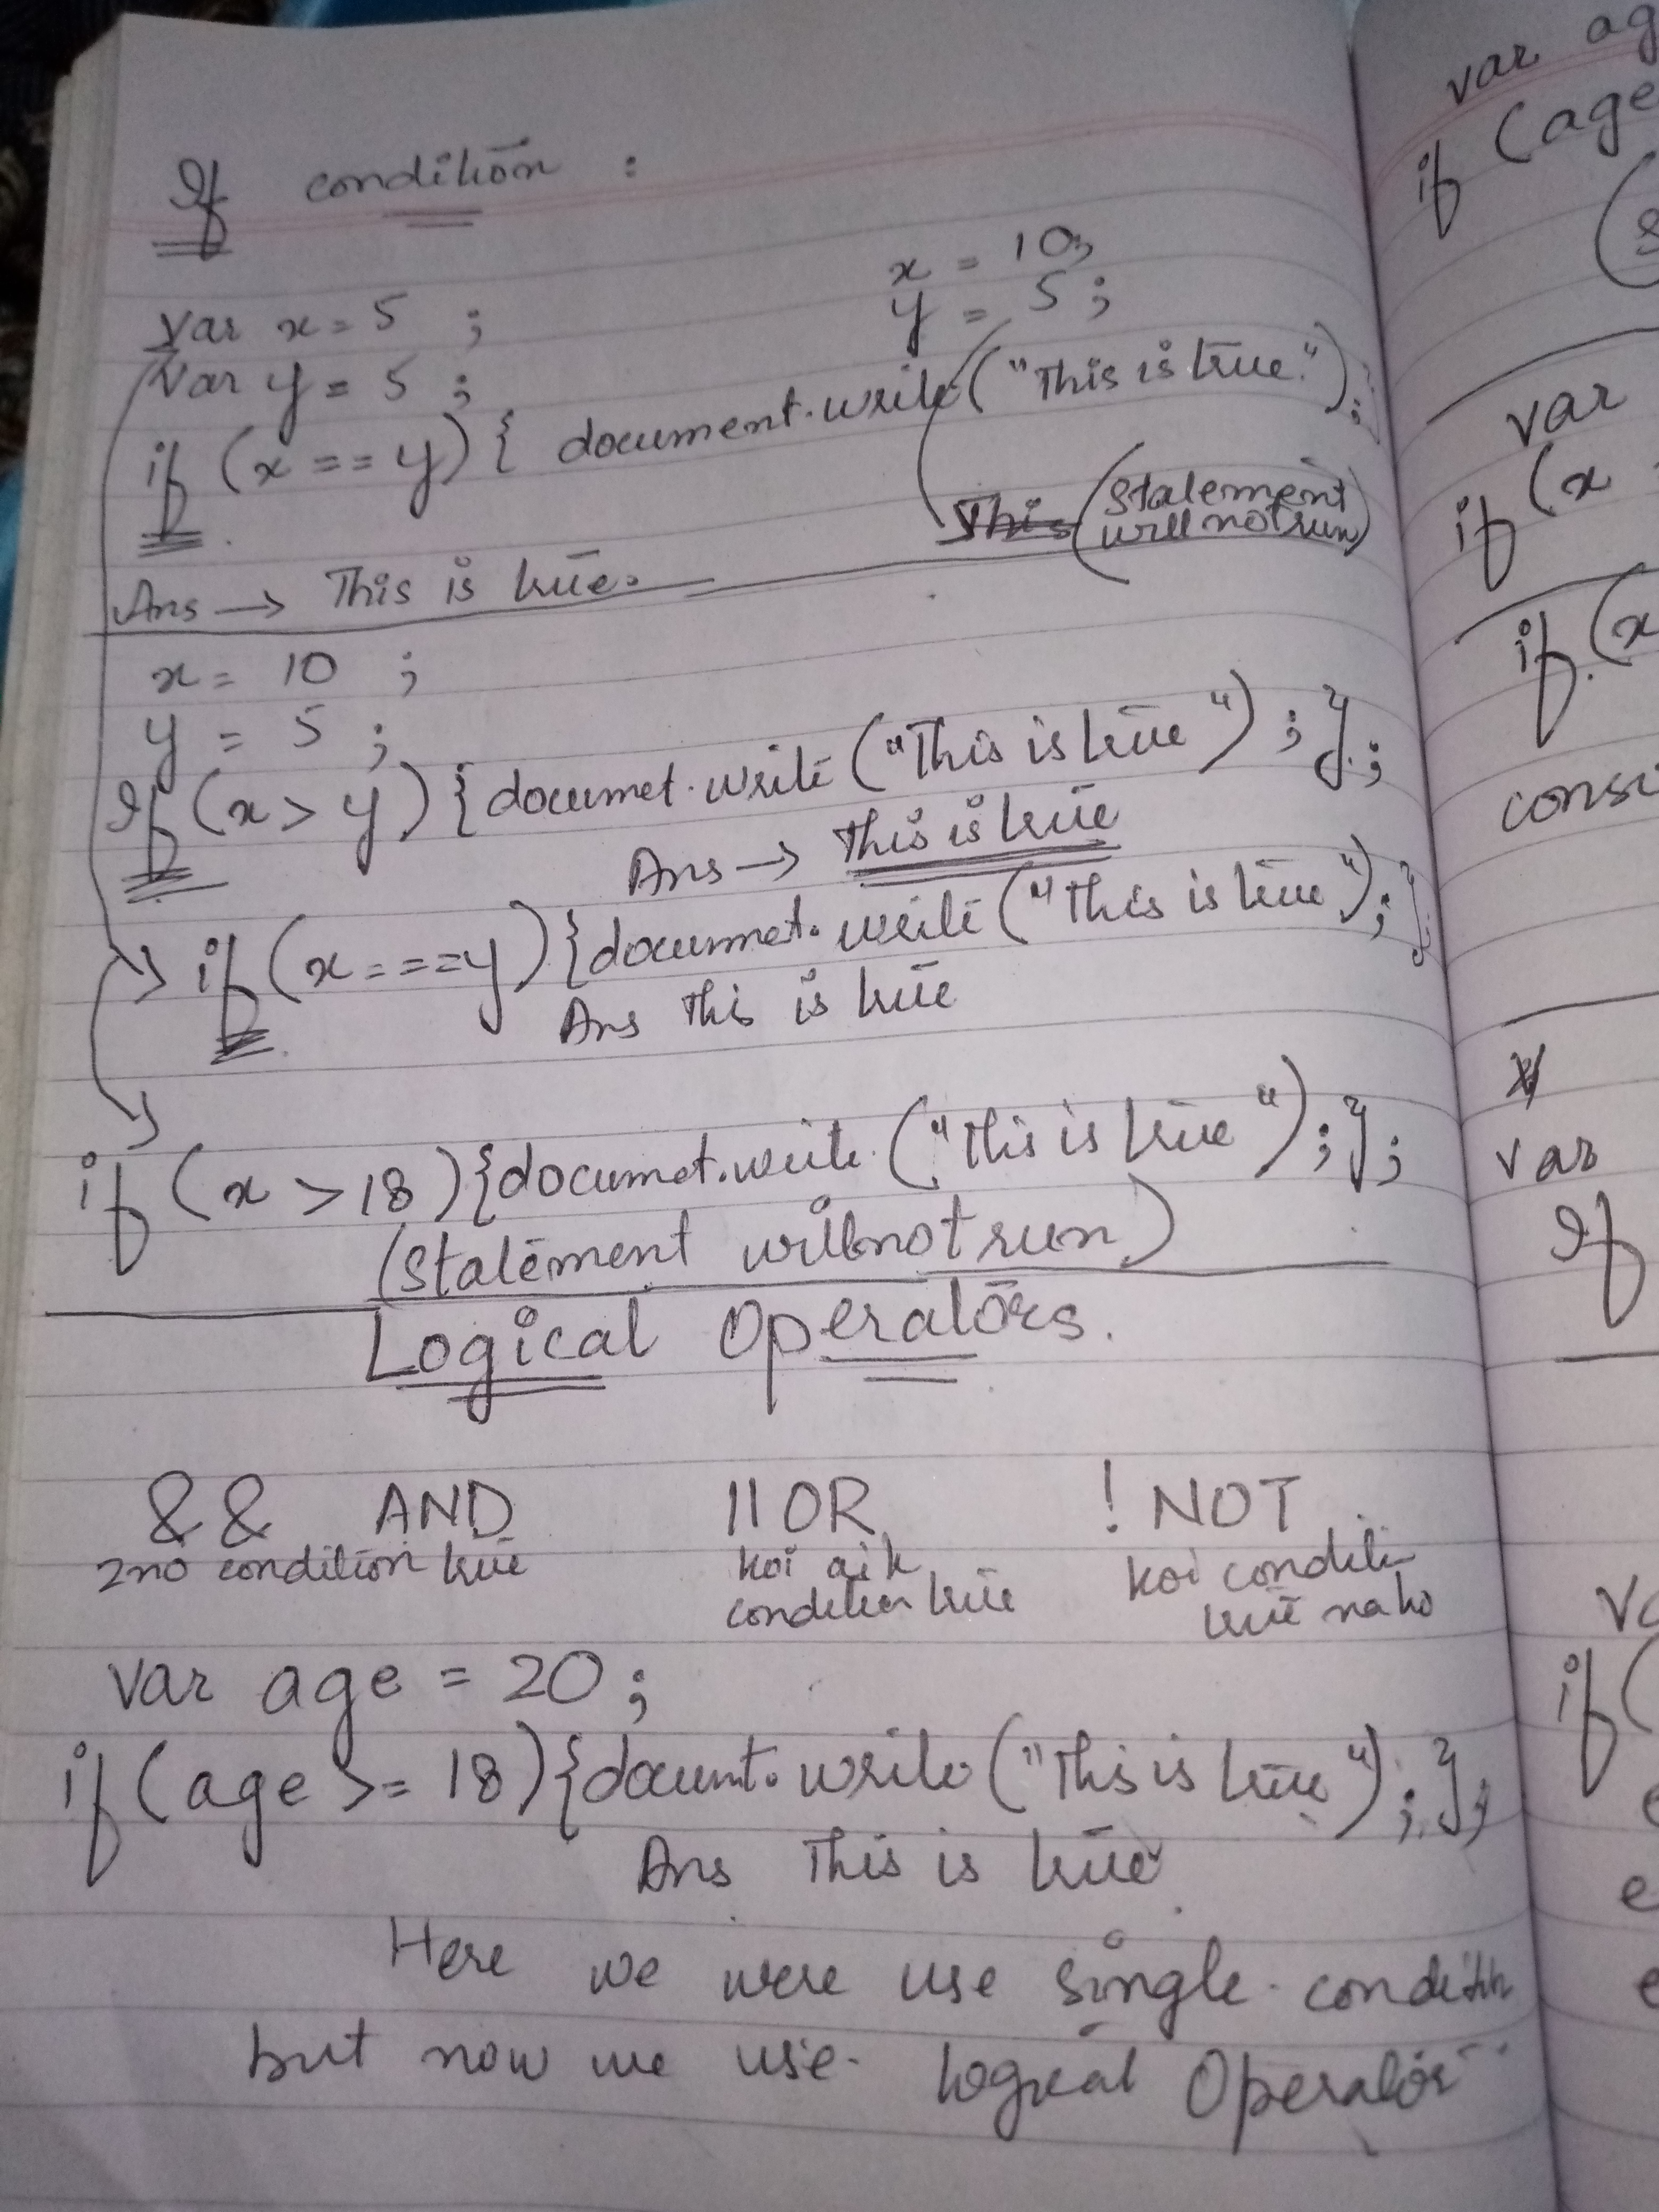 If condition :
x = 10,
y = 5 ;
var x = 5 ;
var y = 5 ;
if (x == y) { document.write ("This is true.");
This (Statement
will not run)
Ans → This is true.
x = 10 ;
y = 5 ;
If (x > y) { documet.write ("This is true") ; } ;
Ans → This is true
if (x === y) { documet.write ("This is true") ; } ;
Ans This is true
if (x > 18) { documet.write ("This is true") ; } ;
(Statement will not run)
Logical Operators.
&& AND || OR ! NOT
2no condition true koi aik koi conditi
condition true true na ho
var age = 20 ;
if (age >= 18) { documt.write ("This is true") ; } ;
Ans This is true
Here we were use single condition
but now we use logical Operator
var ag
if (age
var
if (x
if (x
consi
var
If
va
if (
e
e
e